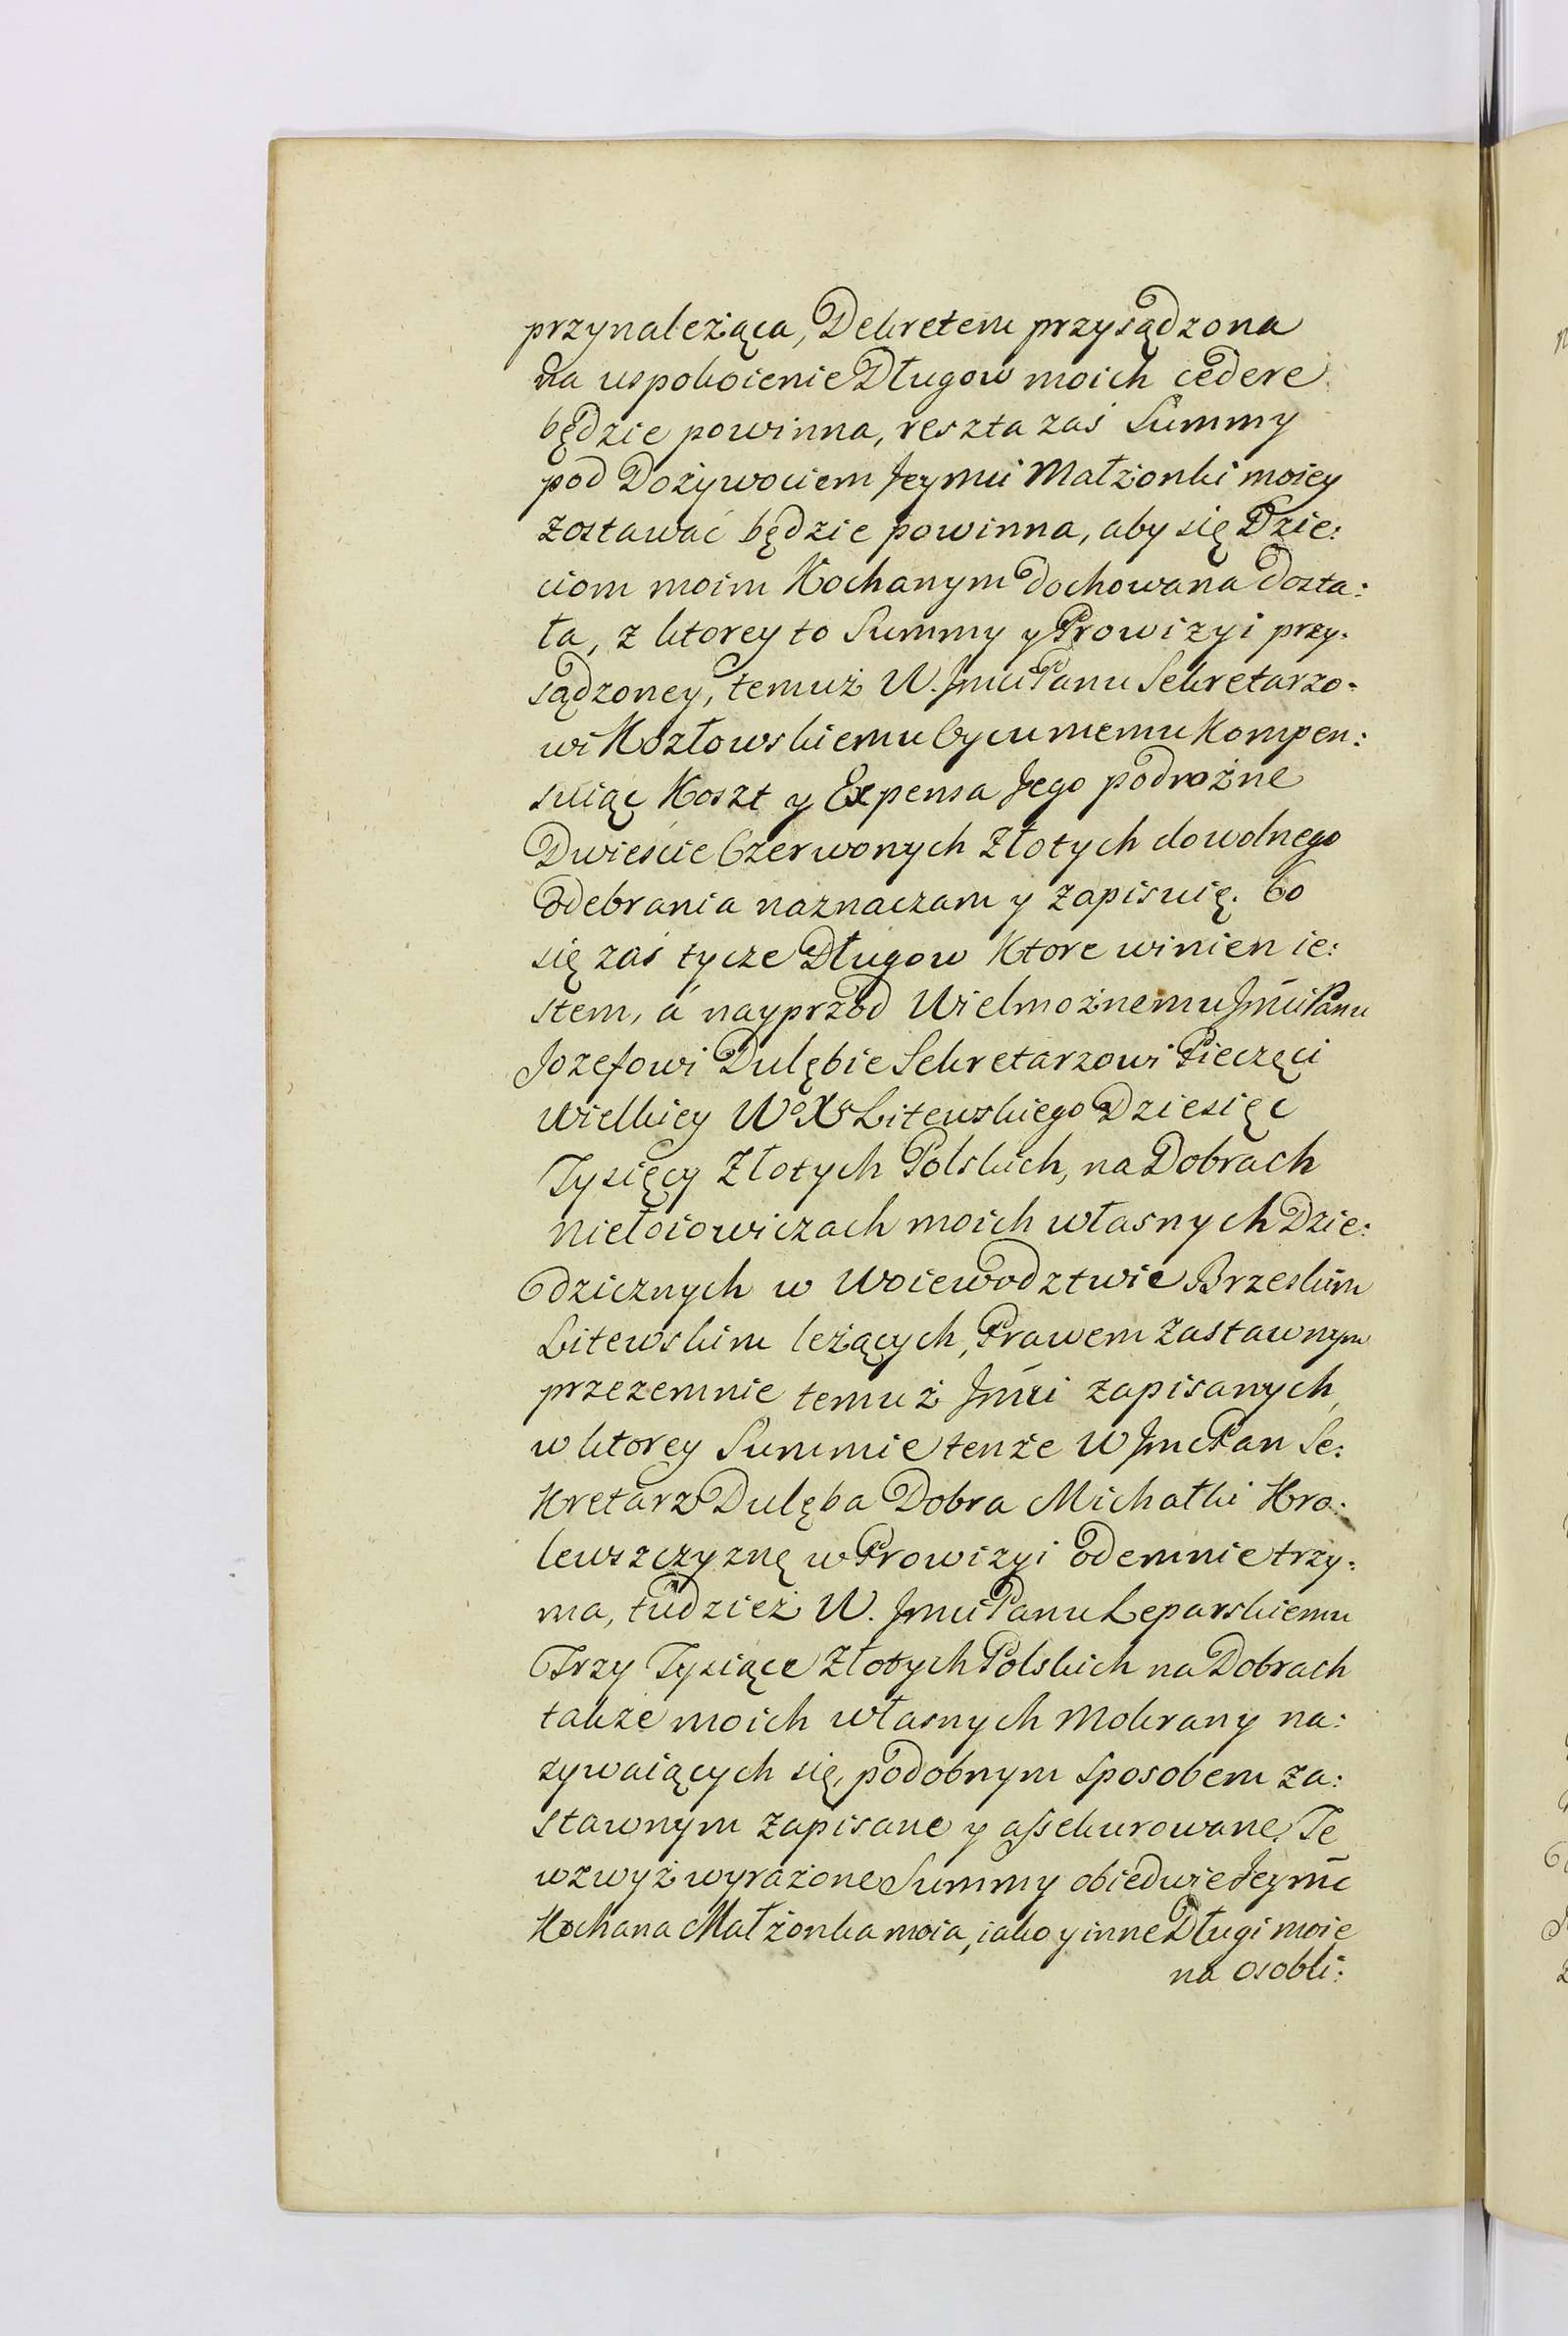 przynależąca, Dekretem przysądzona
na uspokoienie Długow moich cedere
będzie powinna, reszta zaś Summy
pod Dożywociem Jeymci Małżonki moiey
zostawać będzie powinna, aby się Dzie:
ciom moim Kochanym dochowana dosta:
ła, z ktorey to Summy y Prowizyi przy:
sądzoney, temuż W. Jmci Panu Sekretarzo:
wi Kozłowskiemu Oycu memu Kompen:
suiąc Koszt y Expensa Jego podrożne
Dwieście Czerwonych Złotych do wolnego
odebrania naznaczam y zapisuię. Co
się zaś tycze Długow Ktore winien ie:
stem, á nayprzod Wielmożnemu Jmci Panu
Jozefowi Dulębie Sekretarzowi Pieczęci
Wielkiey Wo Xa Litewskiego Dziesięc
Tysięcy Złotych Polskich, na Dobrach
moich własnych Dzie:
dzicznych w Woiewodztwie Brzeskim
Litewskim leżących, Prawem zastawnym
przezemnie temuż Jmci zapisanych,
w ktorey Summie tenże W Jmc Pan Se:
Kretarz Dulęba Dobra Michałki Kro:
lewszczyznę w Prowizyi odemnie trzy:
ma, tudzież W. Jmci Panu Leparskiemu
Trzy Tysiące Złotych Polskich na Dobrach
także moich własnych Mokrany na:
zywaiących się, podobnym sposobem za:
stawnym zapisane y assekurowane. Te
wzwyż wyrażone Summy obiedwie Jeymc
Kochana Małżonka moia, iako y inne Długi moie
na osobli: